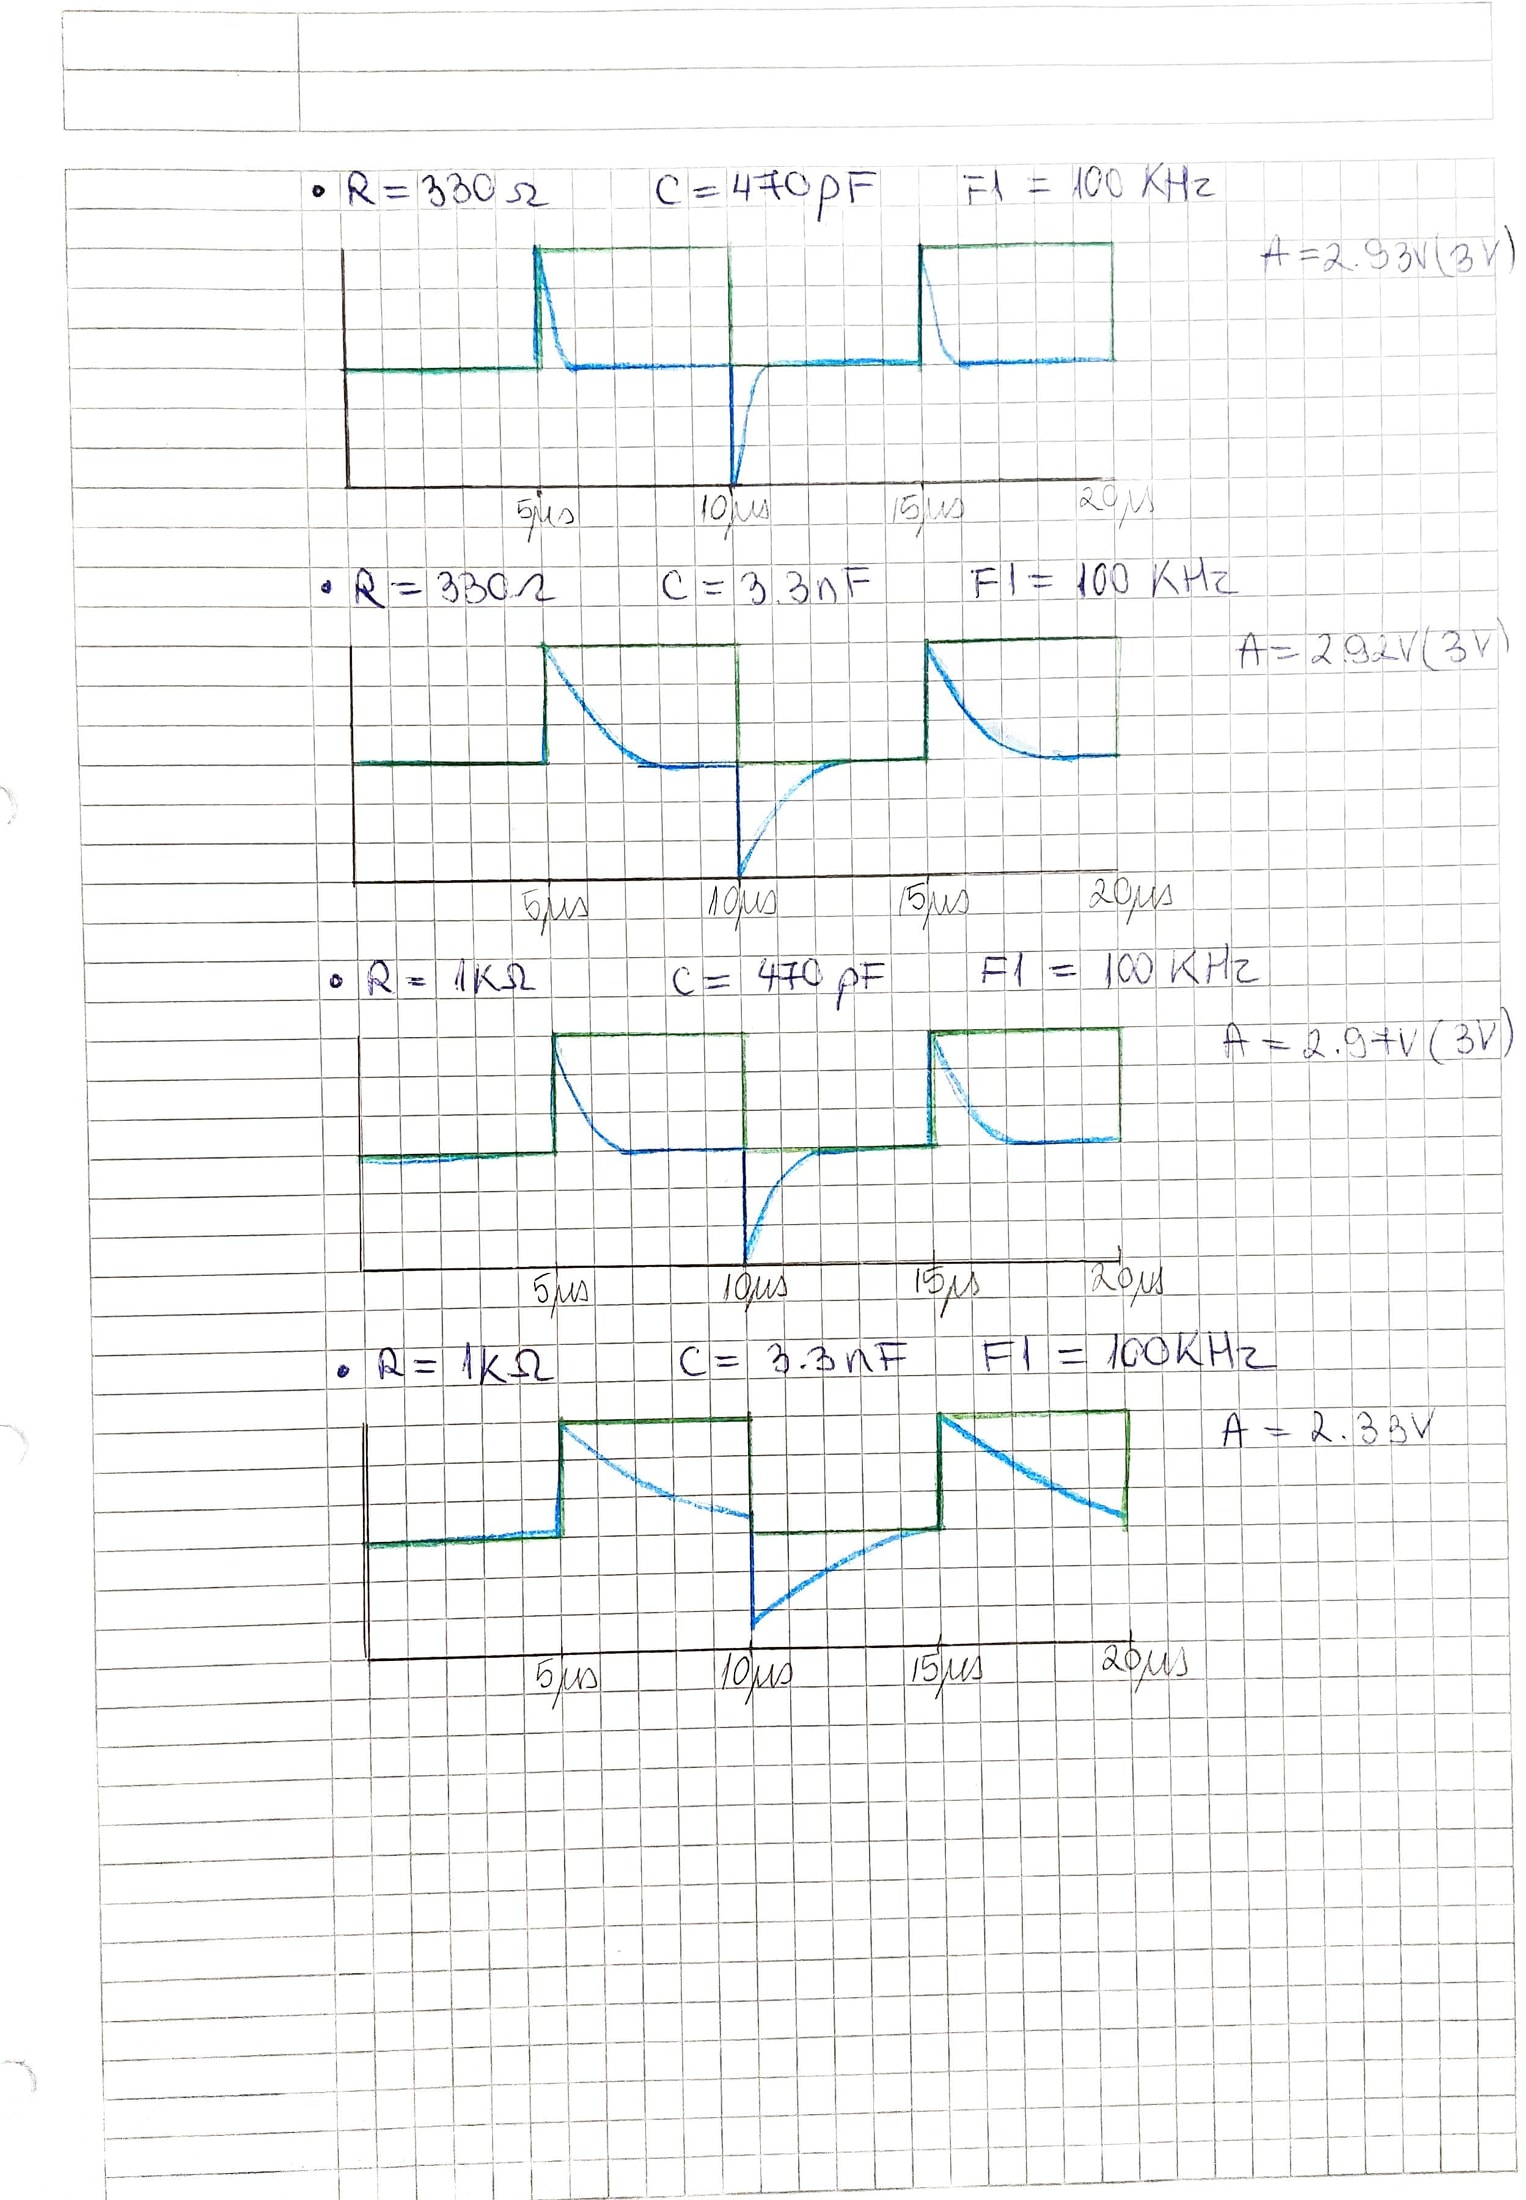 • R = 330Ω C = 470pF F1 = 100 KHz
A = 2.93V (3V)
5µs 10µs 15µs 20µs
• R = 330Ω C = 3.3nF F1 = 100 KHz
A = 2.92V (3V)
5µs 10µs 15µs 20µs
• R = 1KΩ C = 470pF F1 = 100 KHz
A = 2.97V (3V)
5µs 10µs 15µs 20µs
• R = 1KΩ C = 3.3nF F1 = 100KHz
A = 2.33V
5µs 10µs 15µs 20µs